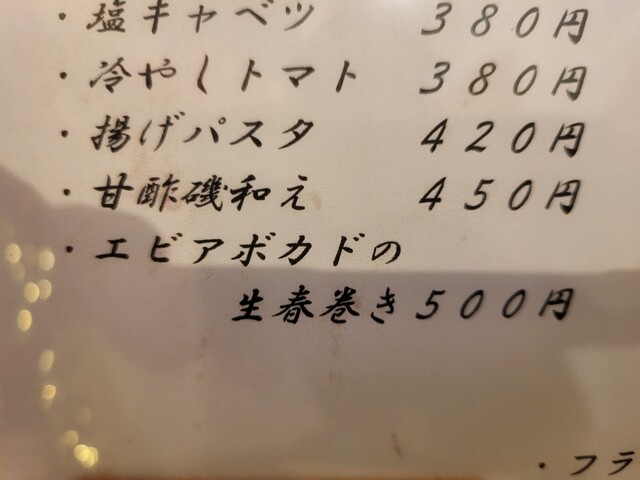 ・塩キャベツ 380円
・冷やしトマト 380円
・揚げパスタ 420円
・甘酢磯和え 450円
・エビアボカドの
生春巻き 500円
・フラ